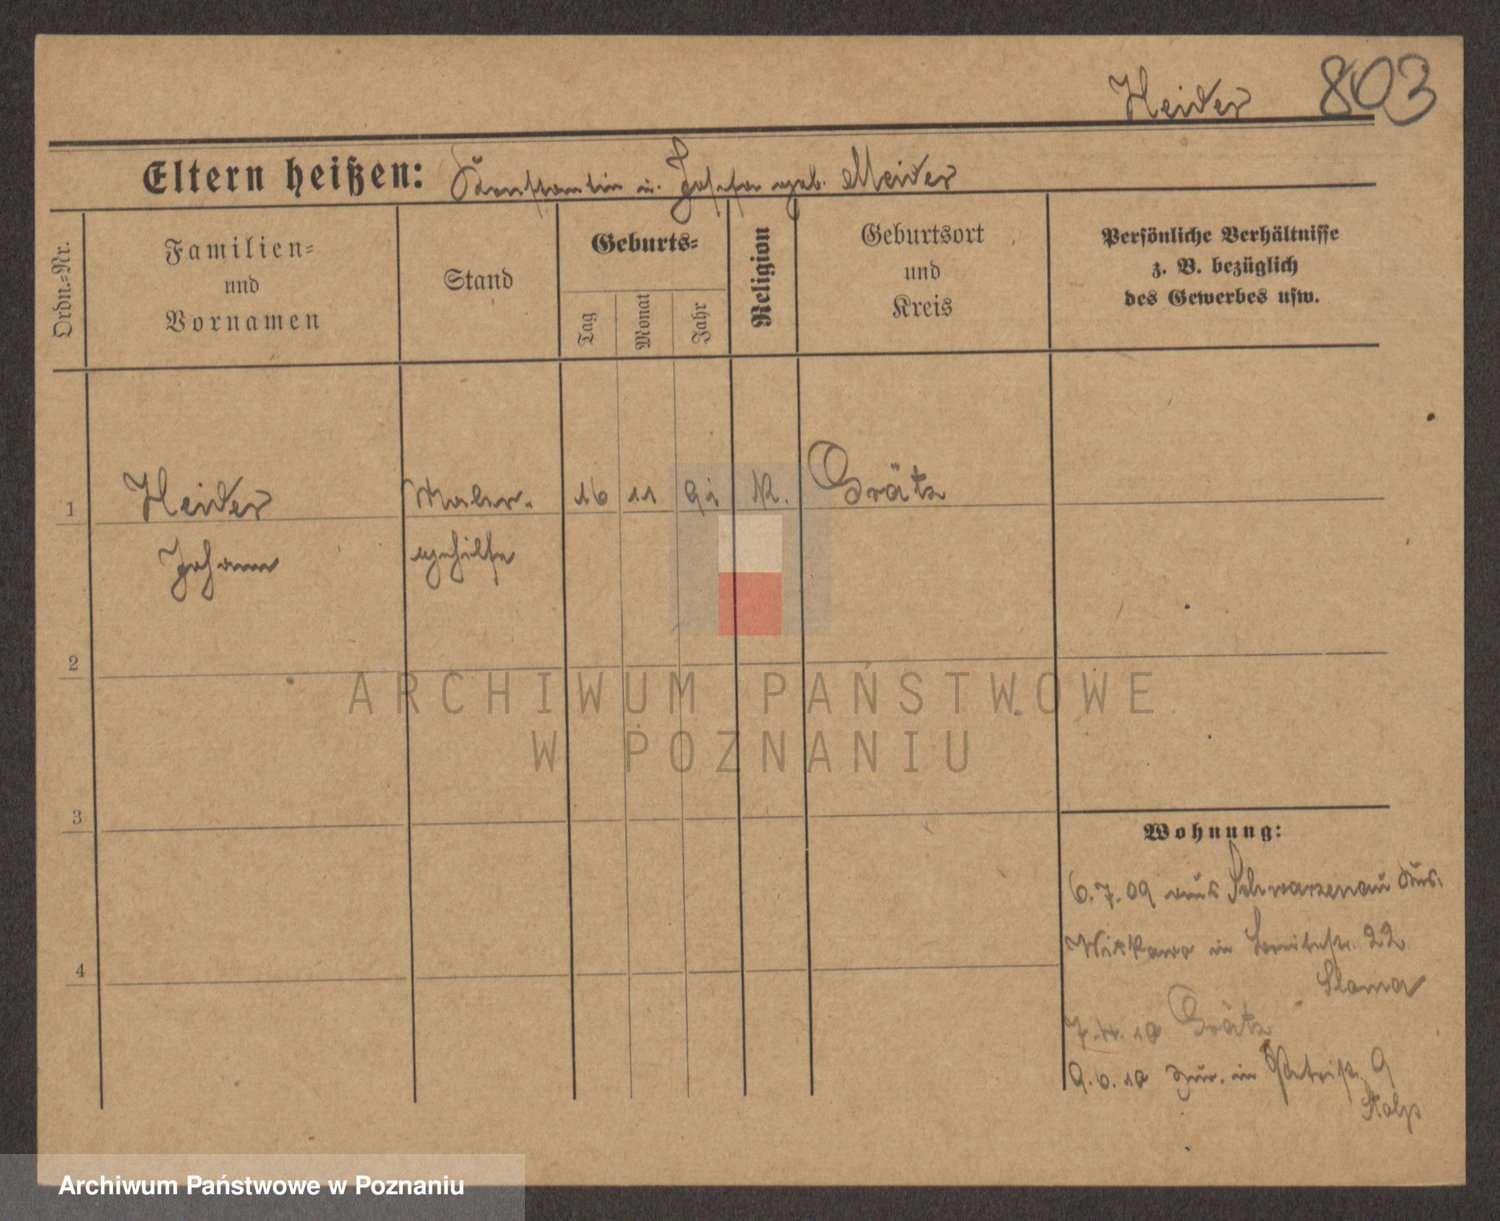 Heider 803
Eltern heißen: Konstantin u. Josefa geb. Meider
Ordn.=Nr.
Familien=
und
Vornamen
Stand
Geburts=
Tag
Monat
Jahr
Religion
Geburtsort
und
Kreis
Persönliche Verhältnisse
z. B. bezüglich
des Gewerbes usw.
1 Heider Maler- 16 11 91 K. Grätz
Johann gehilfe
2
3
4
Wohnung:
6.7.09 aus Schwarzenau
in Breitestr. 22
7.4.10 Grätz
9.6.10 zur. in Petristr. 9
ARCHIWUM PAŃSTWOWE
W POZNANIU
Archiwum Państwowe w Poznaniu